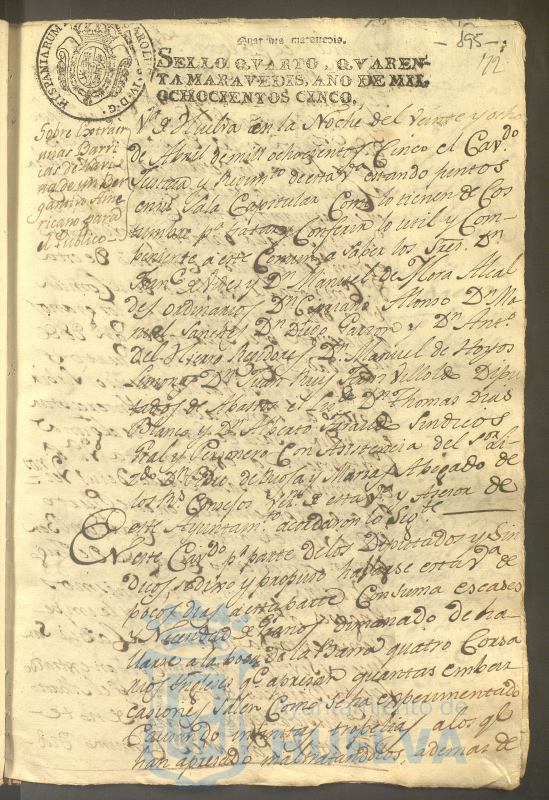 -195-
Quarenta maravedis.
122
HISPANIARUM
CAROLUS IV D.G.
SELLO QVARTO, QVAREN-
TA MARAVEDIS, AÑO DE MIL
OCHOCIENTOS CINCO.
Sobre extraer
unas Barri
cas de Hari
na de un Ber
gantin Ame
ricano para
el Publico
Va. de Huelva en la Noche del veinte y ocho
de Abril de mil ochocientos Cinco el Cavdo.
Justicia y Regimto. de esta Va. estando juntos
en su Sala Capitular Como lo tienen de Cos
tumbre pa. tratar y Conferir lo util y Com-
beniente a este Comun, a saber los Sres. Dn.
y Dn. Manuel de Mora Alcal
des ordinarios, Dn. Cipriano Alonso Dn. Ma
nuel Sanchez, Dn. Diego Garzon y Dn. Anto.
del Hierro Rexidores, Dn. Manuel de Hoyos
Limon, Dn. Juan Ruiz Dipu
tados de Abastos, el Dn. Thomas Dias
Blanco y Dn. Alberto Sindicos
Gral y Personero Con Asistencia del
Dn. de Abogado de
los Rs. Consejos Veco. de esta Va. y Asesor de
este Ayuntamto. acordaron lo Sigte.
En este Cavdo. pr. parte de los Diputados y Sin
dicos se dixo y propuso hallarse esta Va. de
pocos dias a esta parte Con suma escases
y Necesidad de Granos dimanado de ha
llarse a la boca de la Barra quatro Corsa
rios Ingleses qe. apresan quantas embar
caciones Salen Como se ha experimentado
Causando infinitas tropelias a los qe.
han apresado maltratandolos, ademas de
Ayuntamiento de
HUELVA